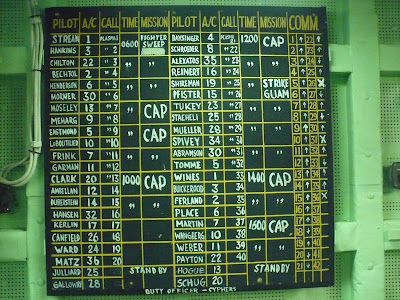 PILOT A/C CALL TIME MISSION PILOT A/C CALL TIME MISSION COMM.
STREAN 1 PLASMA 1 0600 FIGHTER SWEEP BAYSINGER 4 21 1200 CAP 1 ↑ 22 ↑
HANKINS 3 "2 SCHROEDER 8 "22 2 ↑ 23 ↑
CHILTON 22 "3 " " ALEXATOS 35 "23 " " 3 ↑ 24 ↑
BECHTOL 2 "4 REINERT 16 "24 4 ↑ 25 ↑
HENDERSON 6 "5 " " SHIREMAN 19 "25 " STRIKE 5 ↑ 26
HORNER 30 "6 PFISTER 15 "26 GUAM 6 ↑ 27
MOSELEY 13 "7 " CAP TUKEY 23 "27 " " 7 ↑ 28
MEHARG 9 "8 STAEHELI 25 "28 8 ↑ 29
EASTMOND 5 "9 " CAP MUELLER 29 "29 " " 9 ↑ 30
LEBOUTILLIER 10 "10 SPIVEY 34 "30 10 ↑ 31
FRINK 11 "11 " " ABRAMSON 30 "31 " " 11 ↑ 32
GARMAN 13 "12 TOMME 5 "32 12 ↑ 33
CLARK 20 "13 1000 CAP WINES 33 1400 CAP 13 ↑ 34
12 14 3 34 14 ↑ 35
DUBERSTEIN 14 15 " " FERLAND 2 35 " " 15 ↑ 36
HANSEN 32 16 PLACE 6 36 16 37
KERLIN 17 17 " " MARTIN 7 37 1600 CAP 17 38
CANFIELD 26 18 10 38 18 39
WARD 24 19 " " WEBER 11 39 " " 19 40
MATZ 36 20 PAYTON 22 40 20 41
JULLIARD 25 STAND BY HOGUE 13 STANDBY 21 42
GALLOWAY 28 SCHUG 20
DUTY OFFICER - CYPHERS